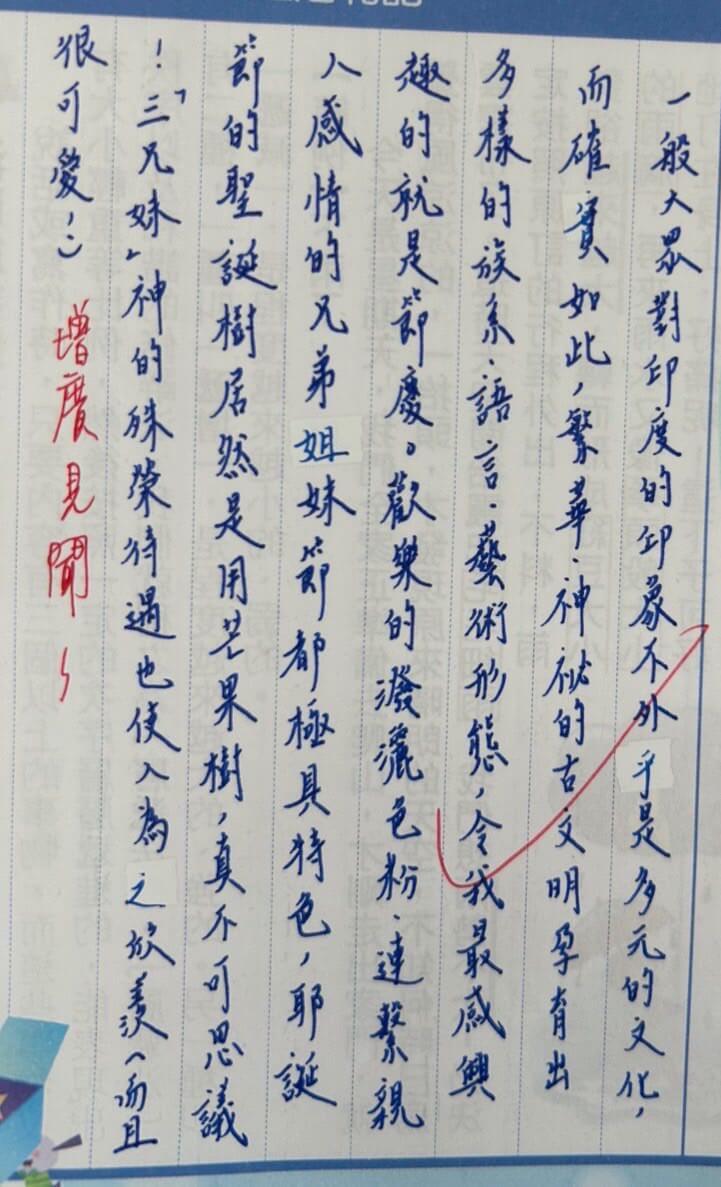 一般大眾對印度的印象不外乎是多元的文化，
而確實如此，繁華、神祕的古文明孕育出
多樣的族系、語言、藝術形態，令我最感興
趣的就是節慶。歡樂的潑灑色粉、連繫親
人感情的兄弟姐妹節都極具特色，耶誕
節的聖誕樹居然是用芒果樹，真不可思議
！「三兄妹」神的殊榮待遇也使人為之欣羨（而且
很可愛！：）
增廣見聞！